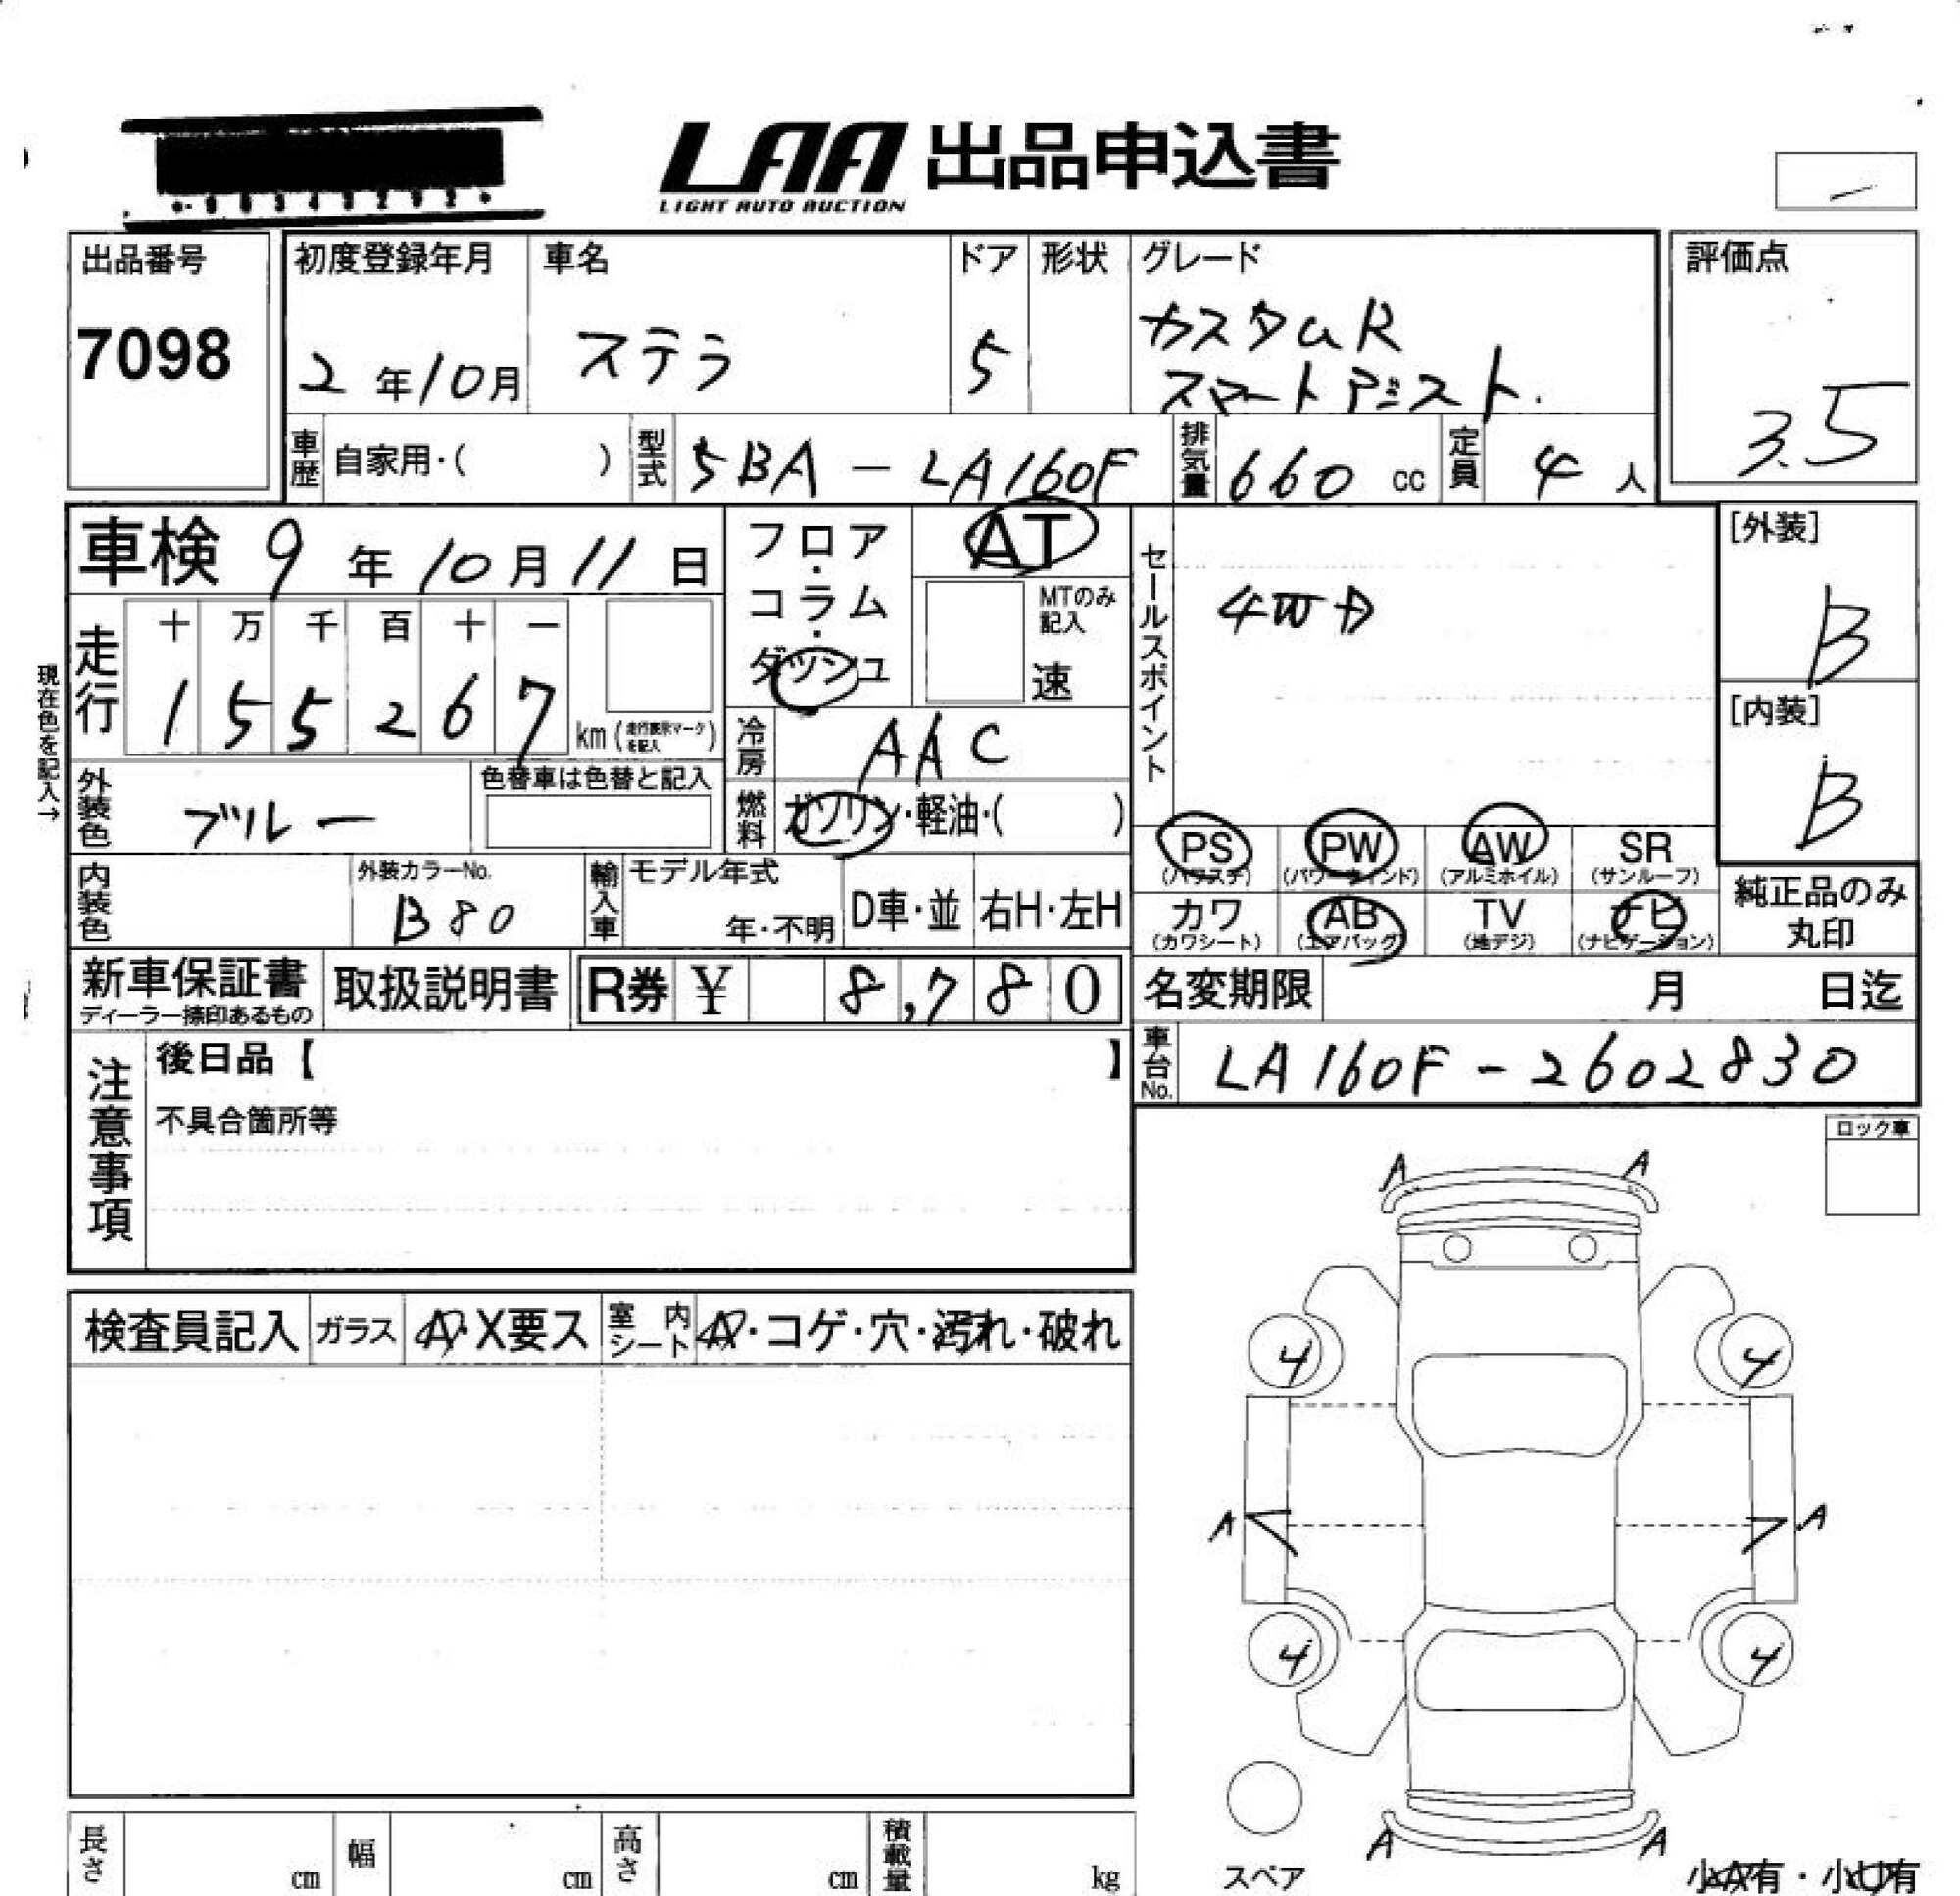 LAA 出品申込書
LIGHT AUTO AUCTION
出品番号
7098
初度登録年月
2年10月
車名
ステラ
ドア
5
形状
グレード
カスタムR
スマートアシスト.
評価点
3.5
車歴
自家用・( )
型式
5BA - LA160F
排気量
660 cc
定員
4人
車検 9年10月11日
フロア・コラム・ダッシュ
AT
MTのみ記入
速
セールスポイント
4WD
[外装]
B
[内装]
B
現在色を記入→
走行
十 万 千 百 十 一
1 5 5 2 6 7 km (走行表示マークを記入)
冷房
AAC
外装色
ブルー
色替車は色替と記入
燃料
ガソリン・軽油・( )
PS
(パワステ)
PW
(パワーウィンド)
AW
(アルミホイル)
SR
(サンルーフ)
カワ
(カワシート)
AB
(エアバック)
TV
(地デジ)
ナビ
(ナビゲーション)
純正品のみ
丸印
内装色
外装カラーNo.
B80
輸入車
モデル年式
年・不明
D車・並
右H・左H
新車保証書
ディーラー捺印あるもの
取扱説明書
R券 ¥ 8,780
名変期限 月 日迄
車台No.
LA160F-2602830
注意事項
後日品【 】
不具合箇所等
ロック車
検査員記入
ガラス
A・X要ス
室内シート
A・コゲ・穴・汚れ・破れ
A A
4 4
A A
4 4
A A
スペア
小A有・小U有
長さ cm
幅 cm
高さ cm
積載量 kg